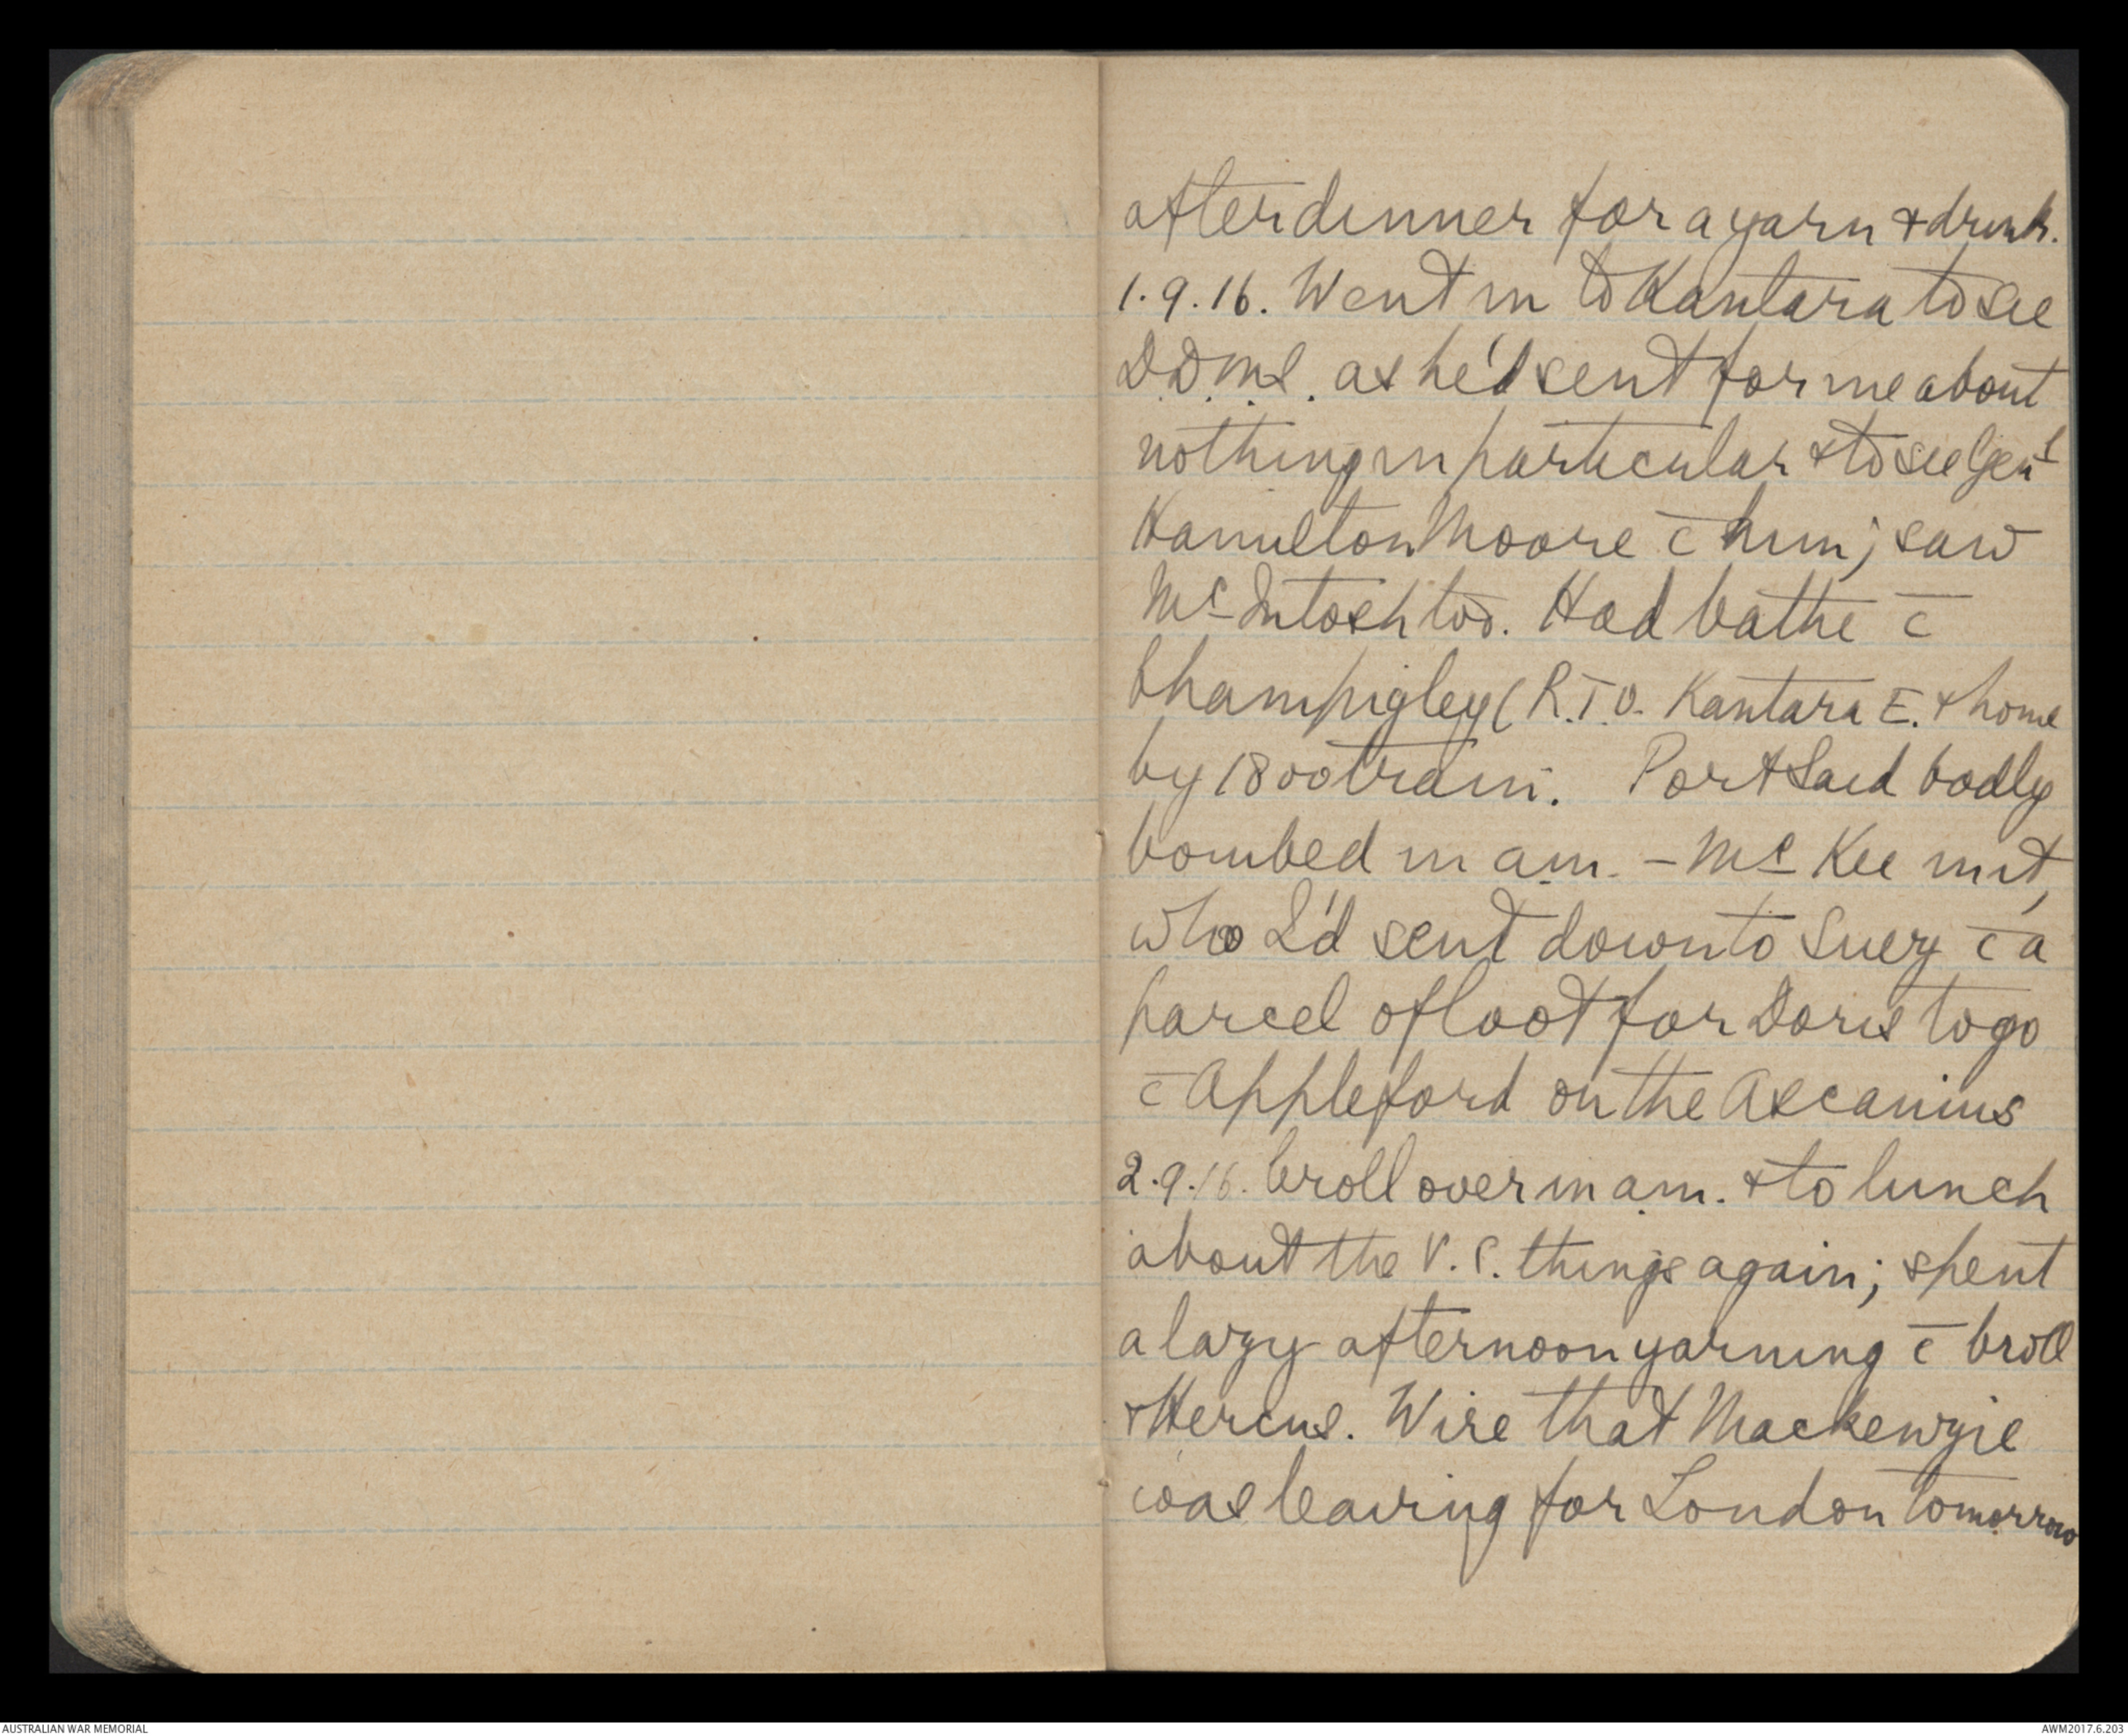 after dinner for a yarn & drink.
1.9.16. Went in to Kantara to see
D.D.M.S. as he'd sent for me about
nothing in particular & to see Gen^l
Hamilton Moore c̄ him; saw
M^cIntosh too. Had bathe c̄
Champigley (R.T.O. Kantara E. & home
by 1800 train. Port Said badly
bombed in a.m. - M^c Kee in it,
who I'd sent down to Suez c̄ a
parcel of loot for Doris to go
c̄ Appleford on the Ascanius
2.9.16. Croll over in a.m. & to lunch
about the V.S. things again; spent
a lazy afternoon yarning c̄ Croll
& Hercus. Wire that Mackenzie
was leaving for London tomorrow
AUSTRALIAN WAR MEMORIAL
AWM2017.6.203